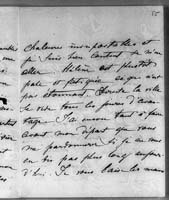 55
chaleurs insupportables et
je suis bien content de m'en
aller. Hélène est plutôt
pale et fatiguée ce qui n'est
pas étonnant. Ensuite la ville
se vide tous les jours d'avan
tage. J'a
avant mon départ que vous
me pardonnerez si je ne vous
en dis pas plus long aujour
d'hui. Je vous baise les mains